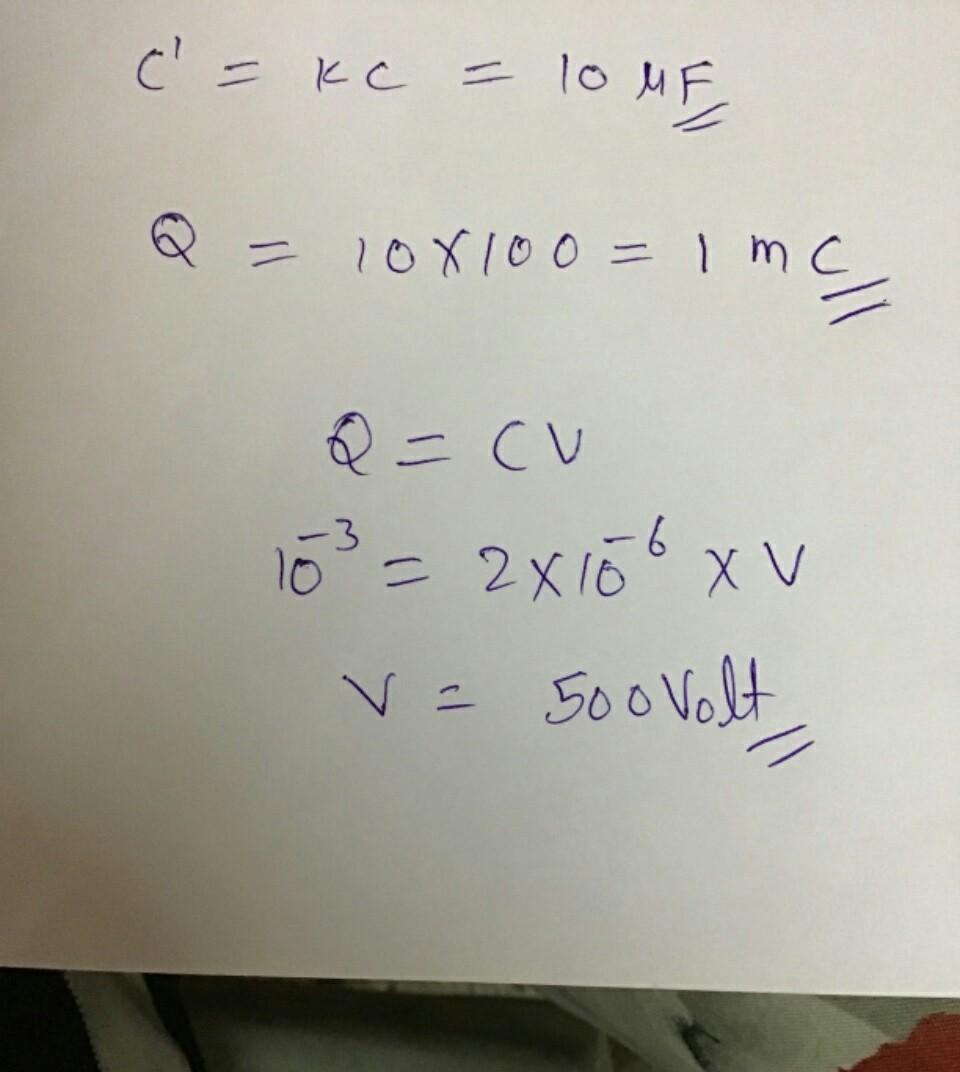 C' = KC = 10 μF
Q = 10X100 = 1 mC
Q = CV
10⁻³ = 2×10⁻⁶ × V
V = 500 Volt